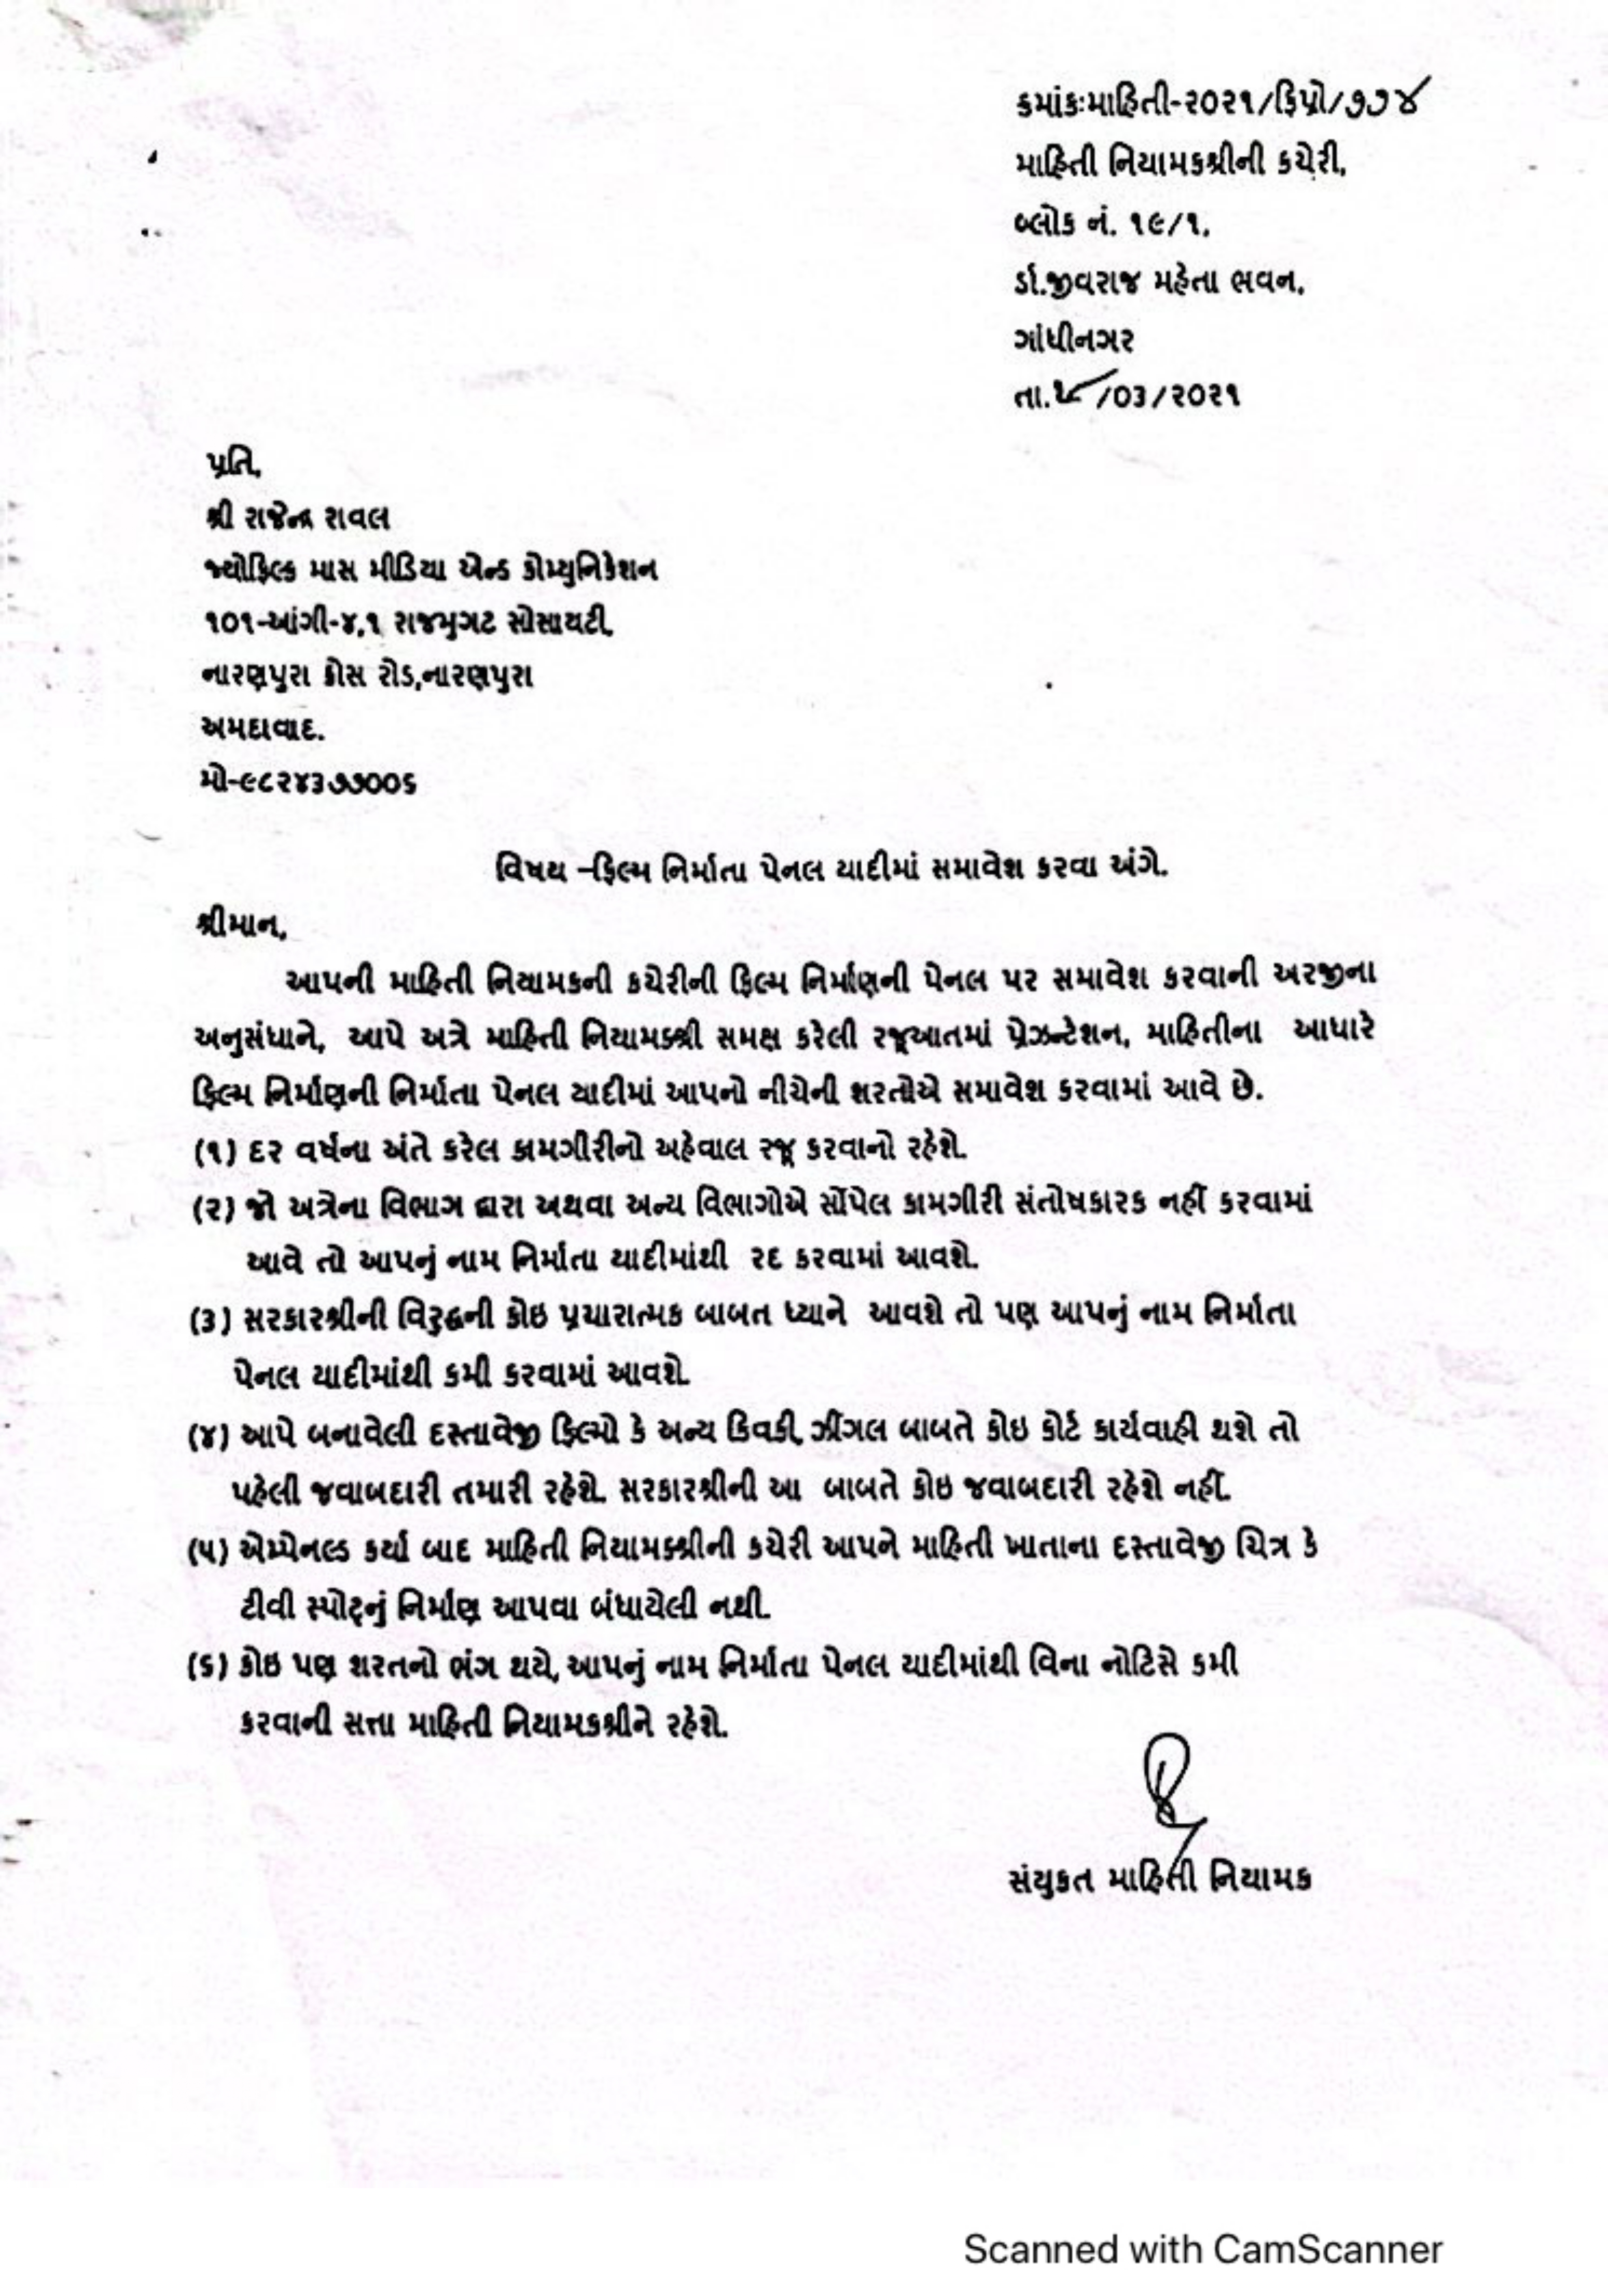 ક્રમાંક:માહિતી-૨૦૨૧/ફિપ્રો/૭૭૪
માહિતી નિયામકશ્રીની કચેરી,
બ્લોક નં. ૧૯/૧,
ર્ડા.જીવરાજ મહેતા ભવન,
ગાંધીનગર
તા. /૦૩/૨૦૨૧
પ્રતિ,
શ્રી રાજેન્દ્ર રાવલ
જ્યોફિલ્ક માસ મીડિયા એન્ડ કોમ્યુનિકેશન
૧૦૧-આંગી-૪,૧ રાજમુગટ સોસાયટી,
નારણપુરા ક્રોસ રોડ,નારણપુરા
અમદાવાદ.
મો-૯૮૨૪૩૭૭૦૦૬
વિષય –ફિલ્મ નિર્માતા પેનલ યાદીમાં સમાવેશ કરવા અંગે.
શ્રીમાન,
આપની માહિતી નિયામકની કચેરીની ફિલ્મ નિર્માણની પેનલ પર સમાવેશ કરવાની અરજીના
અનુસંધાને, આપે અત્રે માહિતી નિયામકશ્રી સમક્ષ કરેલી રજૂઆતમાં પ્રેઝન્ટેશન, માહિતીના આધારે
ફિલ્મ નિર્માણની નિર્માતા પેનલ યાદીમાં આપનો નીચેની શરતોએ સમાવેશ કરવામાં આવે છે.
(૧) દર વર્ષના અંતે કરેલ કામગીરીનો અહેવાલ રજૂ કરવાનો રહેશે.
(૨) જો અત્રેના વિભાગ દ્વારા અથવા અન્ય વિભાગોએ સોંપેલ કામગીરી સંતોષકારક નહીં કરવામાં
આવે તો આપનું નામ નિર્માતા યાદીમાંથી રદ કરવામાં આવશે.
(૩) સરકારશ્રીની વિરુદ્ધની કોઇ પ્રચારાત્મક બાબત ધ્યાને આવશે તો પણ આપનું નામ નિર્માતા
પેનલ યાદીમાંથી કમી કરવામાં આવશે.
(૪) આપે બનાવેલી દસ્તાવેજી ફિલ્મો કે અન્ય કિવકી, ઝીંગલ બાબતે કોઇ કોર્ટ કાર્યવાહી થશે તો
પહેલી જવાબદારી તમારી રહેશે. સરકારશ્રીની આ બાબતે કોઇ જવાબદારી રહેશે નહીં.
(૫) એમ્પેનલ્ડ કર્યા બાદ માહિતી નિયામકશ્રીની કચેરી આપને માહિતી ખાતાના દસ્તાવેજી ચિત્ર કે
ટીવી સ્પોટ્નું નિર્માણ આપવા બંધાયેલી નથી.
(૬) કોઇ પણ શરતનો ભંગ થયે, આપનું નામ નિર્માતા પેનલ યાદીમાંથી વિના નોટિસે કમી
કરવાની સત્તા માહિતી નિયામકશ્રીને રહેશે.
સંયુકત માહિતી નિયામક
Scanned with CamScanner